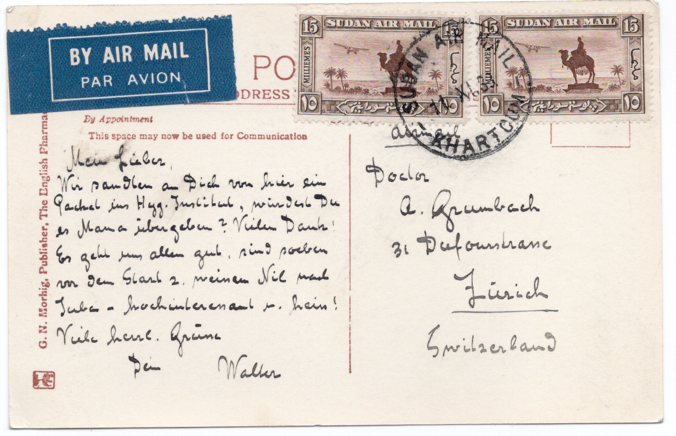 BY AIR MAIL
PAR AVION
15 SUDAN AIR MAIL 15
MILLIEMES
١٥ ١٥
15 SUDAN AIR MAIL 15
MILLIEMES
١٥ ١٥
SUDAN AIR MAIL
KHARTOUM
PO
DDRESS
By Appointment
This space may now be used for Communication
G. N. Morhig, Publisher, The English Pharma
Mein Lieber,
Wir sandten an Dich von hier ein
Packet ins Hyg. Institut, würdest Du
es Mama übergeben? Vielen Dank!
Es geht uns allen gut, sind soeben
vor dem Start z. weissen Nil nach
Juba - hochinteressant u. heiss!
Viele herzl. Grüsse
Dein Walter
Doctor
A. Grumbach
31 Dufourstrasse
Zürich
Switzerland